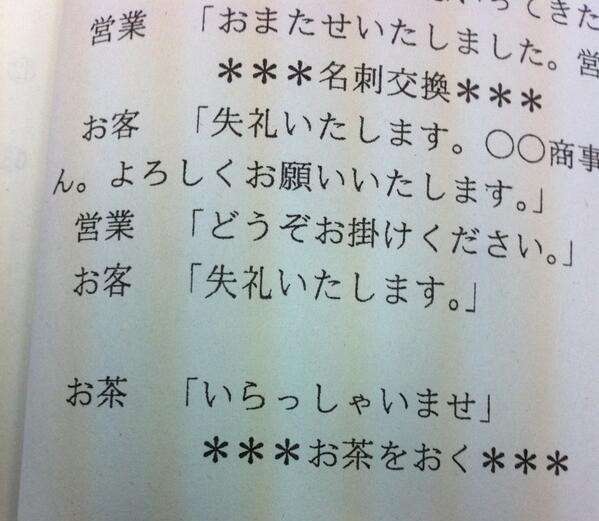 いってきた
営業 「おまたせいたしました。営
＊＊＊名刺交換＊＊＊
お客 「失礼いたします。○○商事
ん。よろしくお願いいたします。」
営業 「どうぞお掛けください。」
お客 「失礼いたします。」
お茶 「いらっしゃいませ」
＊＊＊お茶をおく＊＊＊